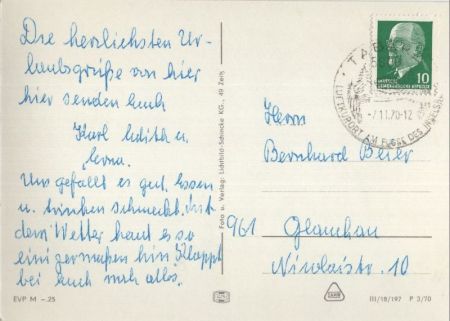 Die herzlichsten Ur-
laubsgrüße von hier
hier senden Euch
Karl Edith u.
Erna.
Uns gefällt es gut. Essen
u. trinken schmeckt, mit
dem Wetter haut es so
einigermaßen hin Klappt
bei Euch noch alles.
EVP M –.25
Foto u. Verlag: Lichtbild-Schincke KG., 49 Zeitz
10
DEUTSCHE
DEMOKRATISCHE REPUBLIK
TABARZ
-7.11.70-12
LUFTKURORT AM FUSSE DES INSELSBERGES
Herrn
Bernhard Beier
961 Glauchau
Nicolaistr. 10
III/18/197 P 3/70